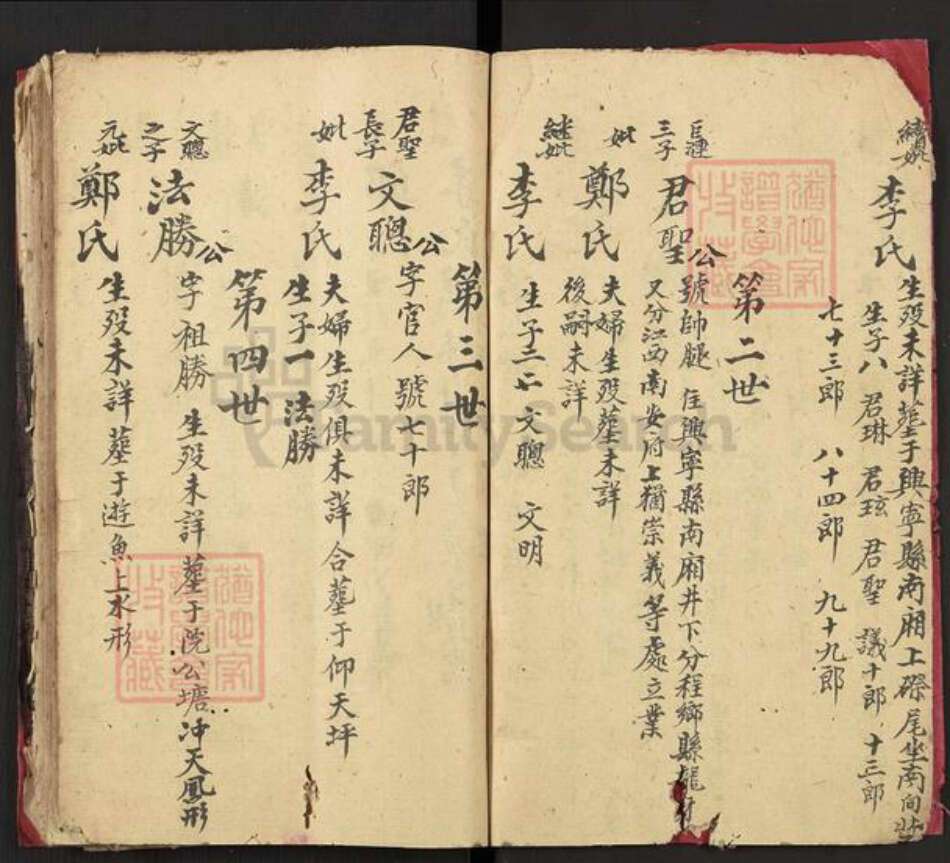 繼妣 李氏 生歿未詳塟于興寧縣南廂上磜尾坐南向北
生子八 君琳 君玹 君聖 議十郎 十三郎
七十三郎 八十四郎 九十九郎
第二世
三子 君聖公 號帥腿 住興寧縣南廂井下分程鄉縣龍
又分江西南安府上猶崇義等處立業
妣 鄭氏 夫婦生歿塟未詳
後嗣未詳
繼妣 李氏 生子二 文聰 文明
第三世
君聖長子 文聰公 字官人號七十郎
妣 李氏 夫婦生歿俱未詳合塟于仰天坪
生子一 法勝
第四世
文聰之子 法勝公 字祖勝 生歿未詳塟于洗公塘冲天鳳形
元妣 鄭氏 生歿未詳塟于遊魚上水形
FamilySearch